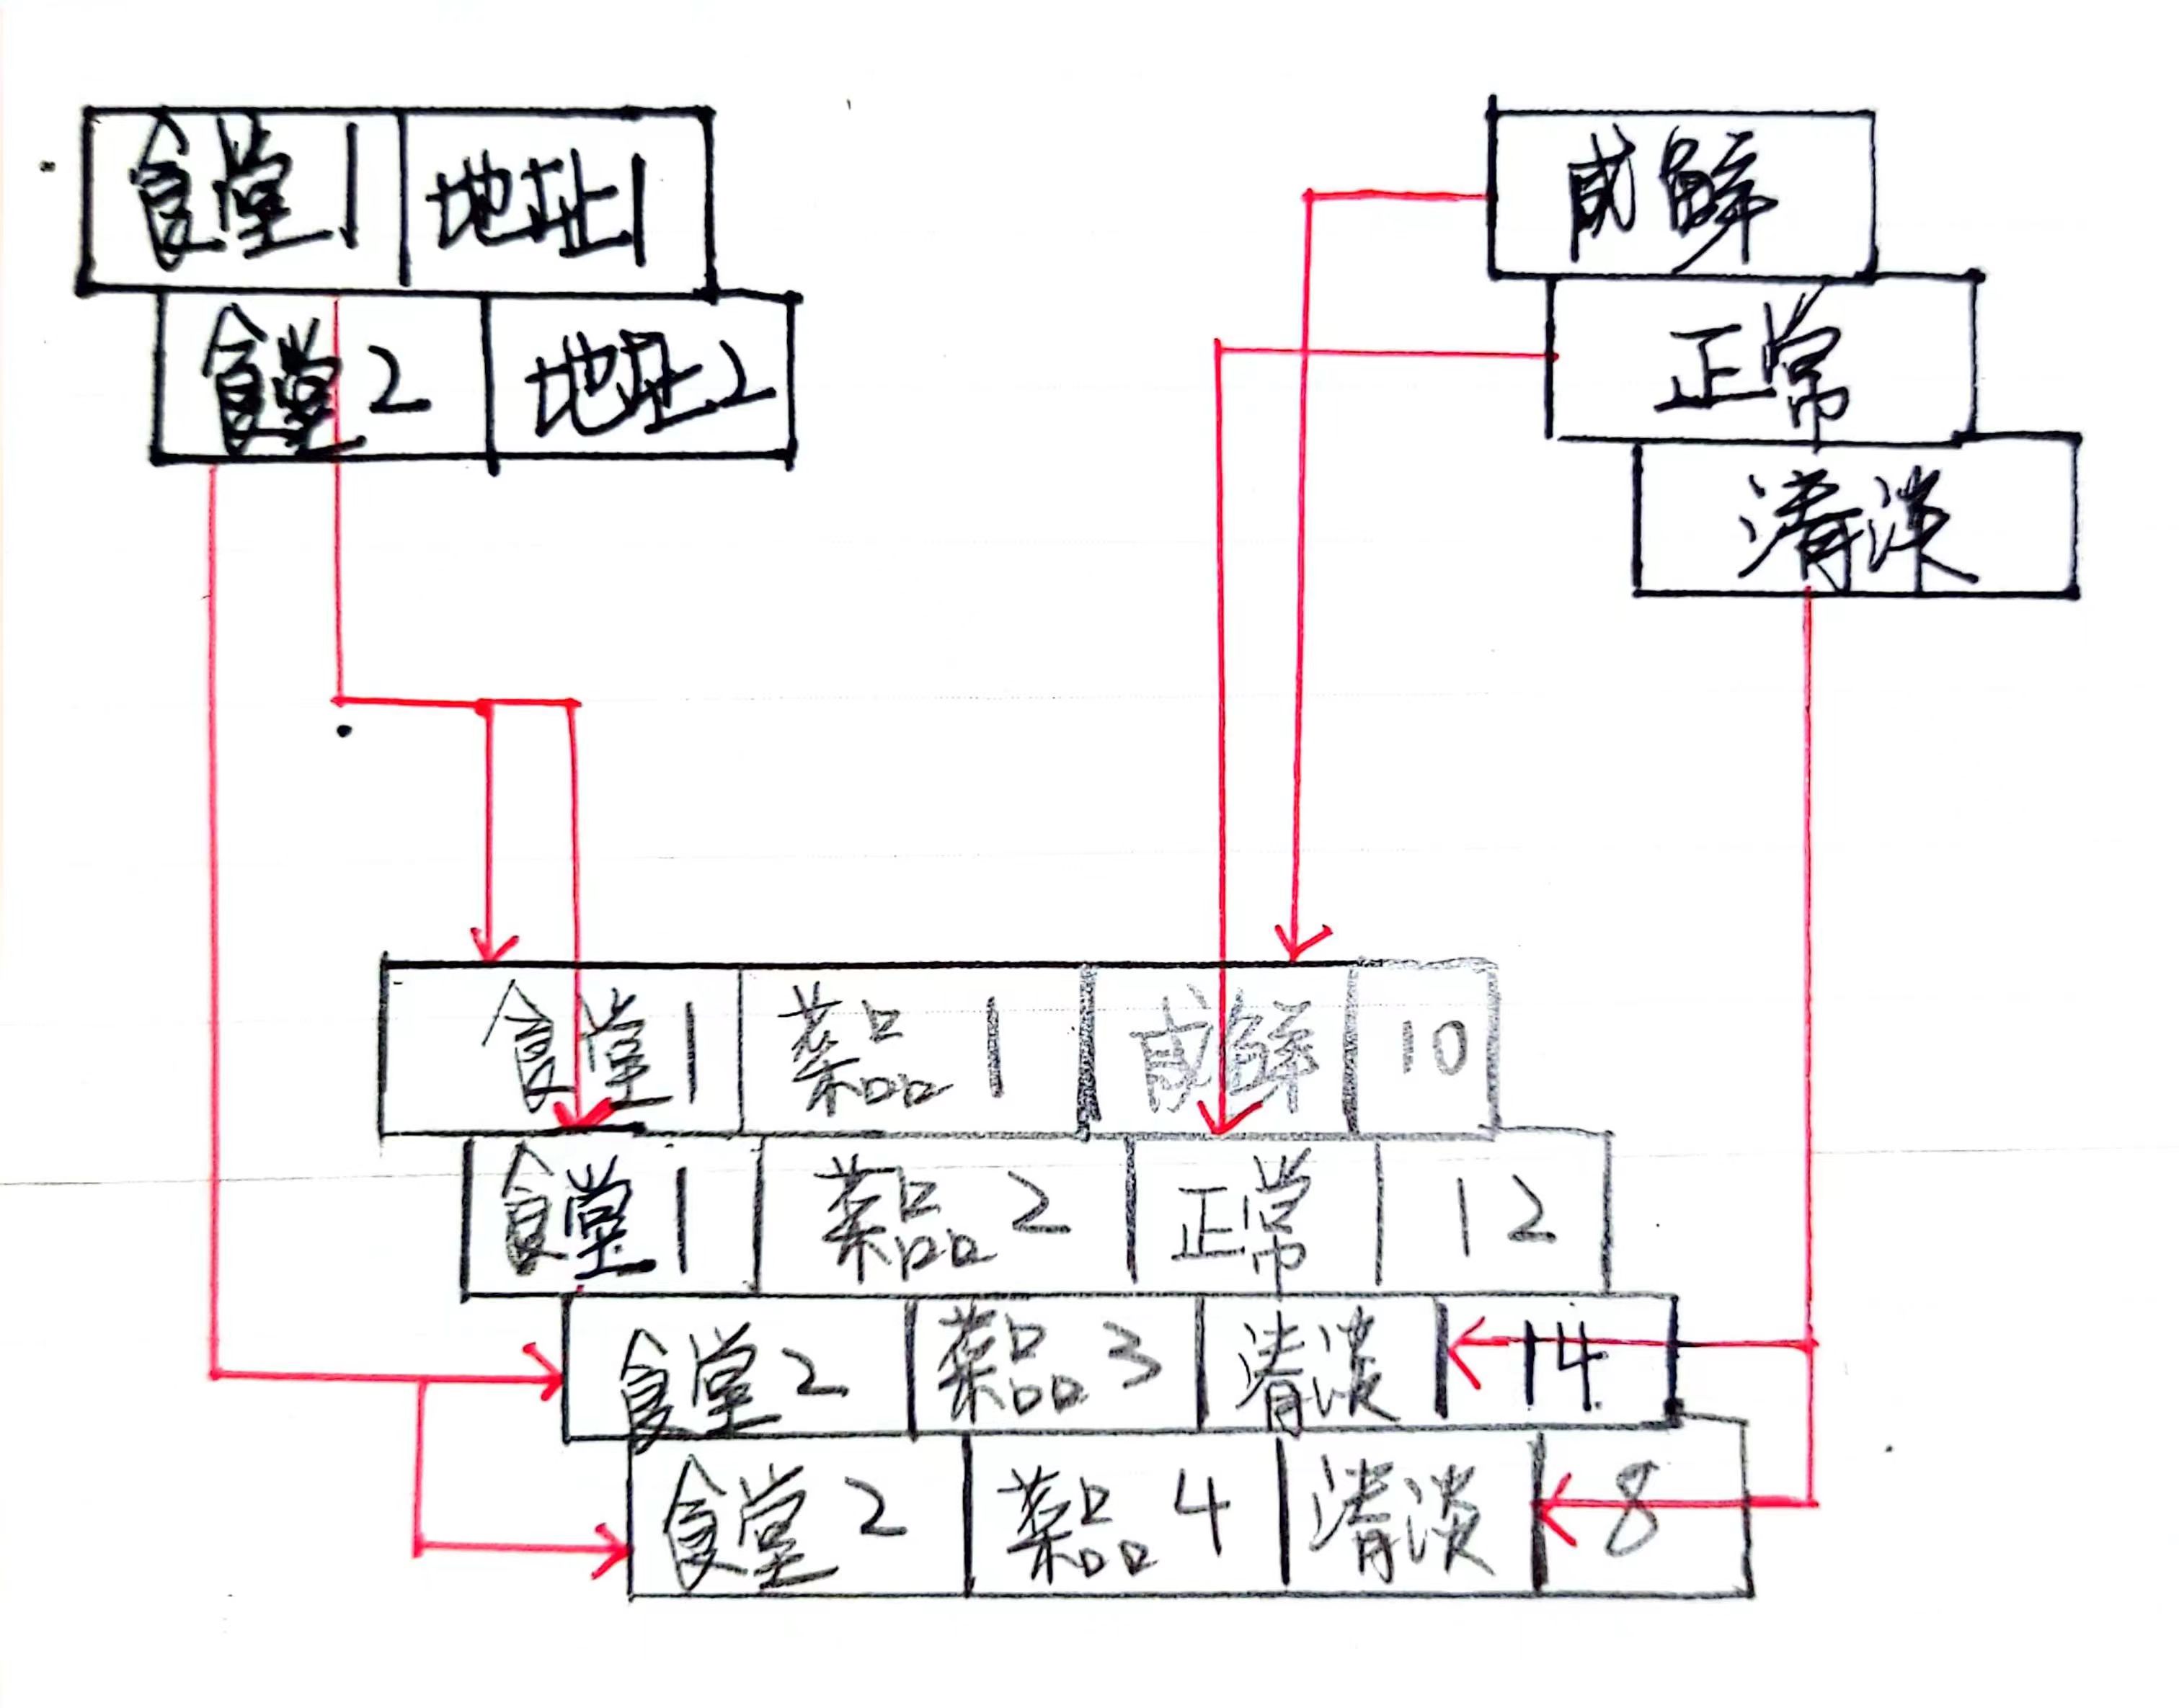 食堂1 地址1
食堂2 地址2
咸鲜
正常
清淡
食堂1 菜品1 咸鲜 10
食堂1 菜品2 正常 12
食堂2 菜品3 清淡 14
食堂2 菜品4 清淡 8